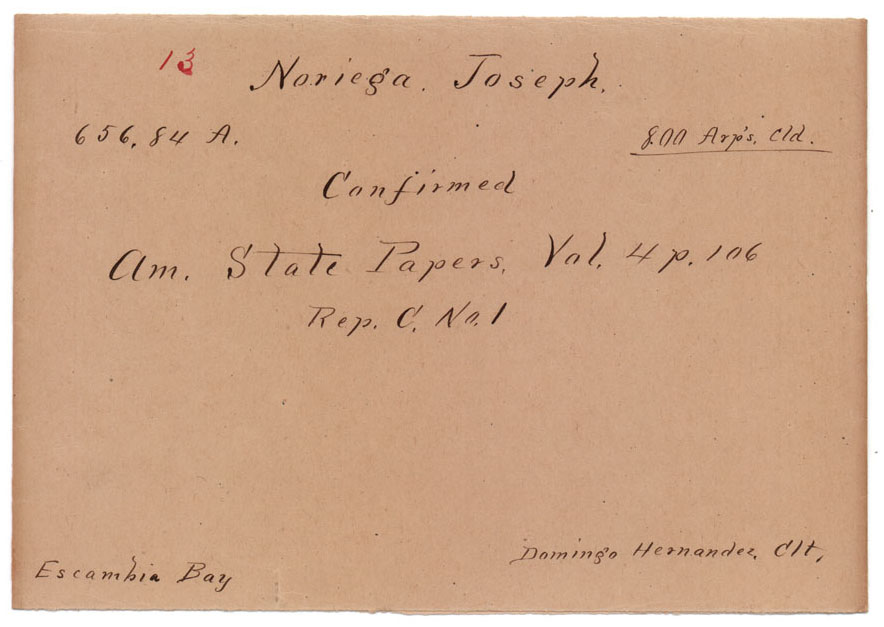 13
Noriega. Joseph.
656.84 A.
800 Arp's. Cld.
Confirmed
Am. State Papers, Vol. 4 p. 106
Rep. C. No. 1
Domingo Hernandez, Clt.
Escambia Bay